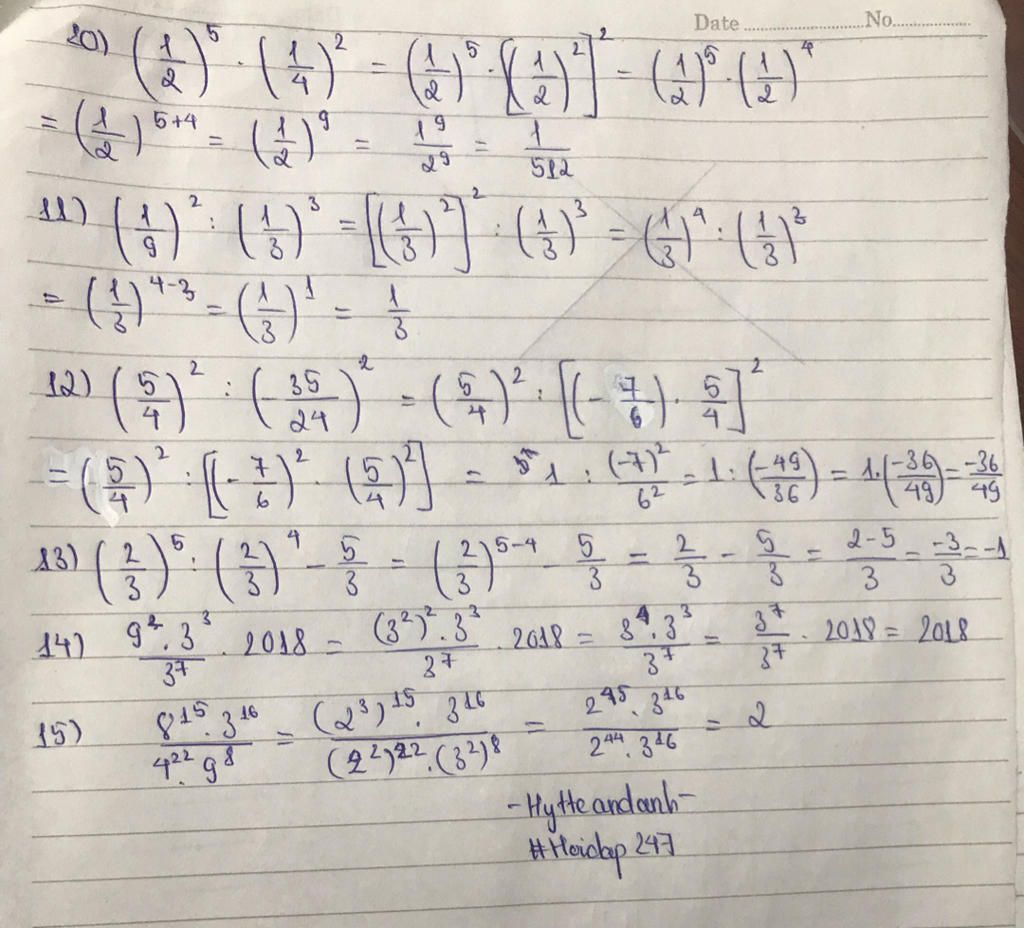 Date ........................ No. ..................
10) (1/2)^5 · (1/4)^2 = (1/2)^5 · [(1/2)^2]^2 = (1/2)^5 · (1/2)^4
= (1/2)^(5+4) = (1/2)^9 = 1^9/2^9 = 1/512
11) (1/9)^2 : (1/3)^3 = [(1/3)^2]^2 : (1/3)^3 = (1/3)^4 : (1/3)^3
= (1/3)^(4-3) = (1/3)^1 = 1/3
12) (5/4)^2 : (-35/24)^2 = (5/4)^2 : [(-7/6) · 5/4]^2
= (5/4)^2 : [(-7/6)^2 · (5/4)^2] = 1 : (-7)^2/6^2 = 1 : (-49/36) = 1 · (-36/49) = -36/49
13) (2/3)^5 : (2/3)^4 - 5/3 = (2/3)^(5-4) - 5/3 = 2/3 - 5/3 = 2-5/3 = -3/3 = -1
14) 9^2 · 3^3/3^7 · 2018 = (3^2)^2 · 3^3/3^7 · 2018 = 3^4 · 3^3/3^7 = 3^7/3^7 · 2018 = 2018
15) 8^15 · 3^16/4^22 · 9^8 = (2^3)^15 · 3^16/(2^2)^22 · (3^2)^8 = 2^45 · 3^16/2^44 · 3^16 = 2
-Hytteandanh-
#Hoidap247